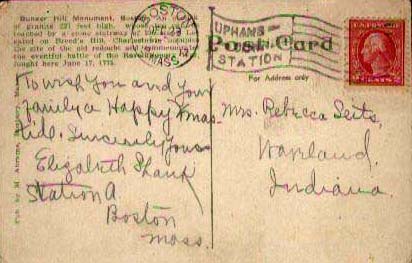 Bunker Hill Monument, Boston. An
of granite 221 feet high,
reached by a stone stairway of
cated on Breed's Hill, Charlestown,
the site of the old redoubt and commemorates
the eventful battle of the Revolutionary
fought here June 17, 1775.
BOSTON
MASS.
UPHAMS
STATION
Post Card
For Address only
To wish you and your
family a Happy Xmas-
tide. Sincerely Yours
Elizabeth
Station A
Boston
Mass.
Mrs. Rebecca Seits,
Waveland,
Indiana.
Pub. by M. Abrams, Roxbury, Mass.